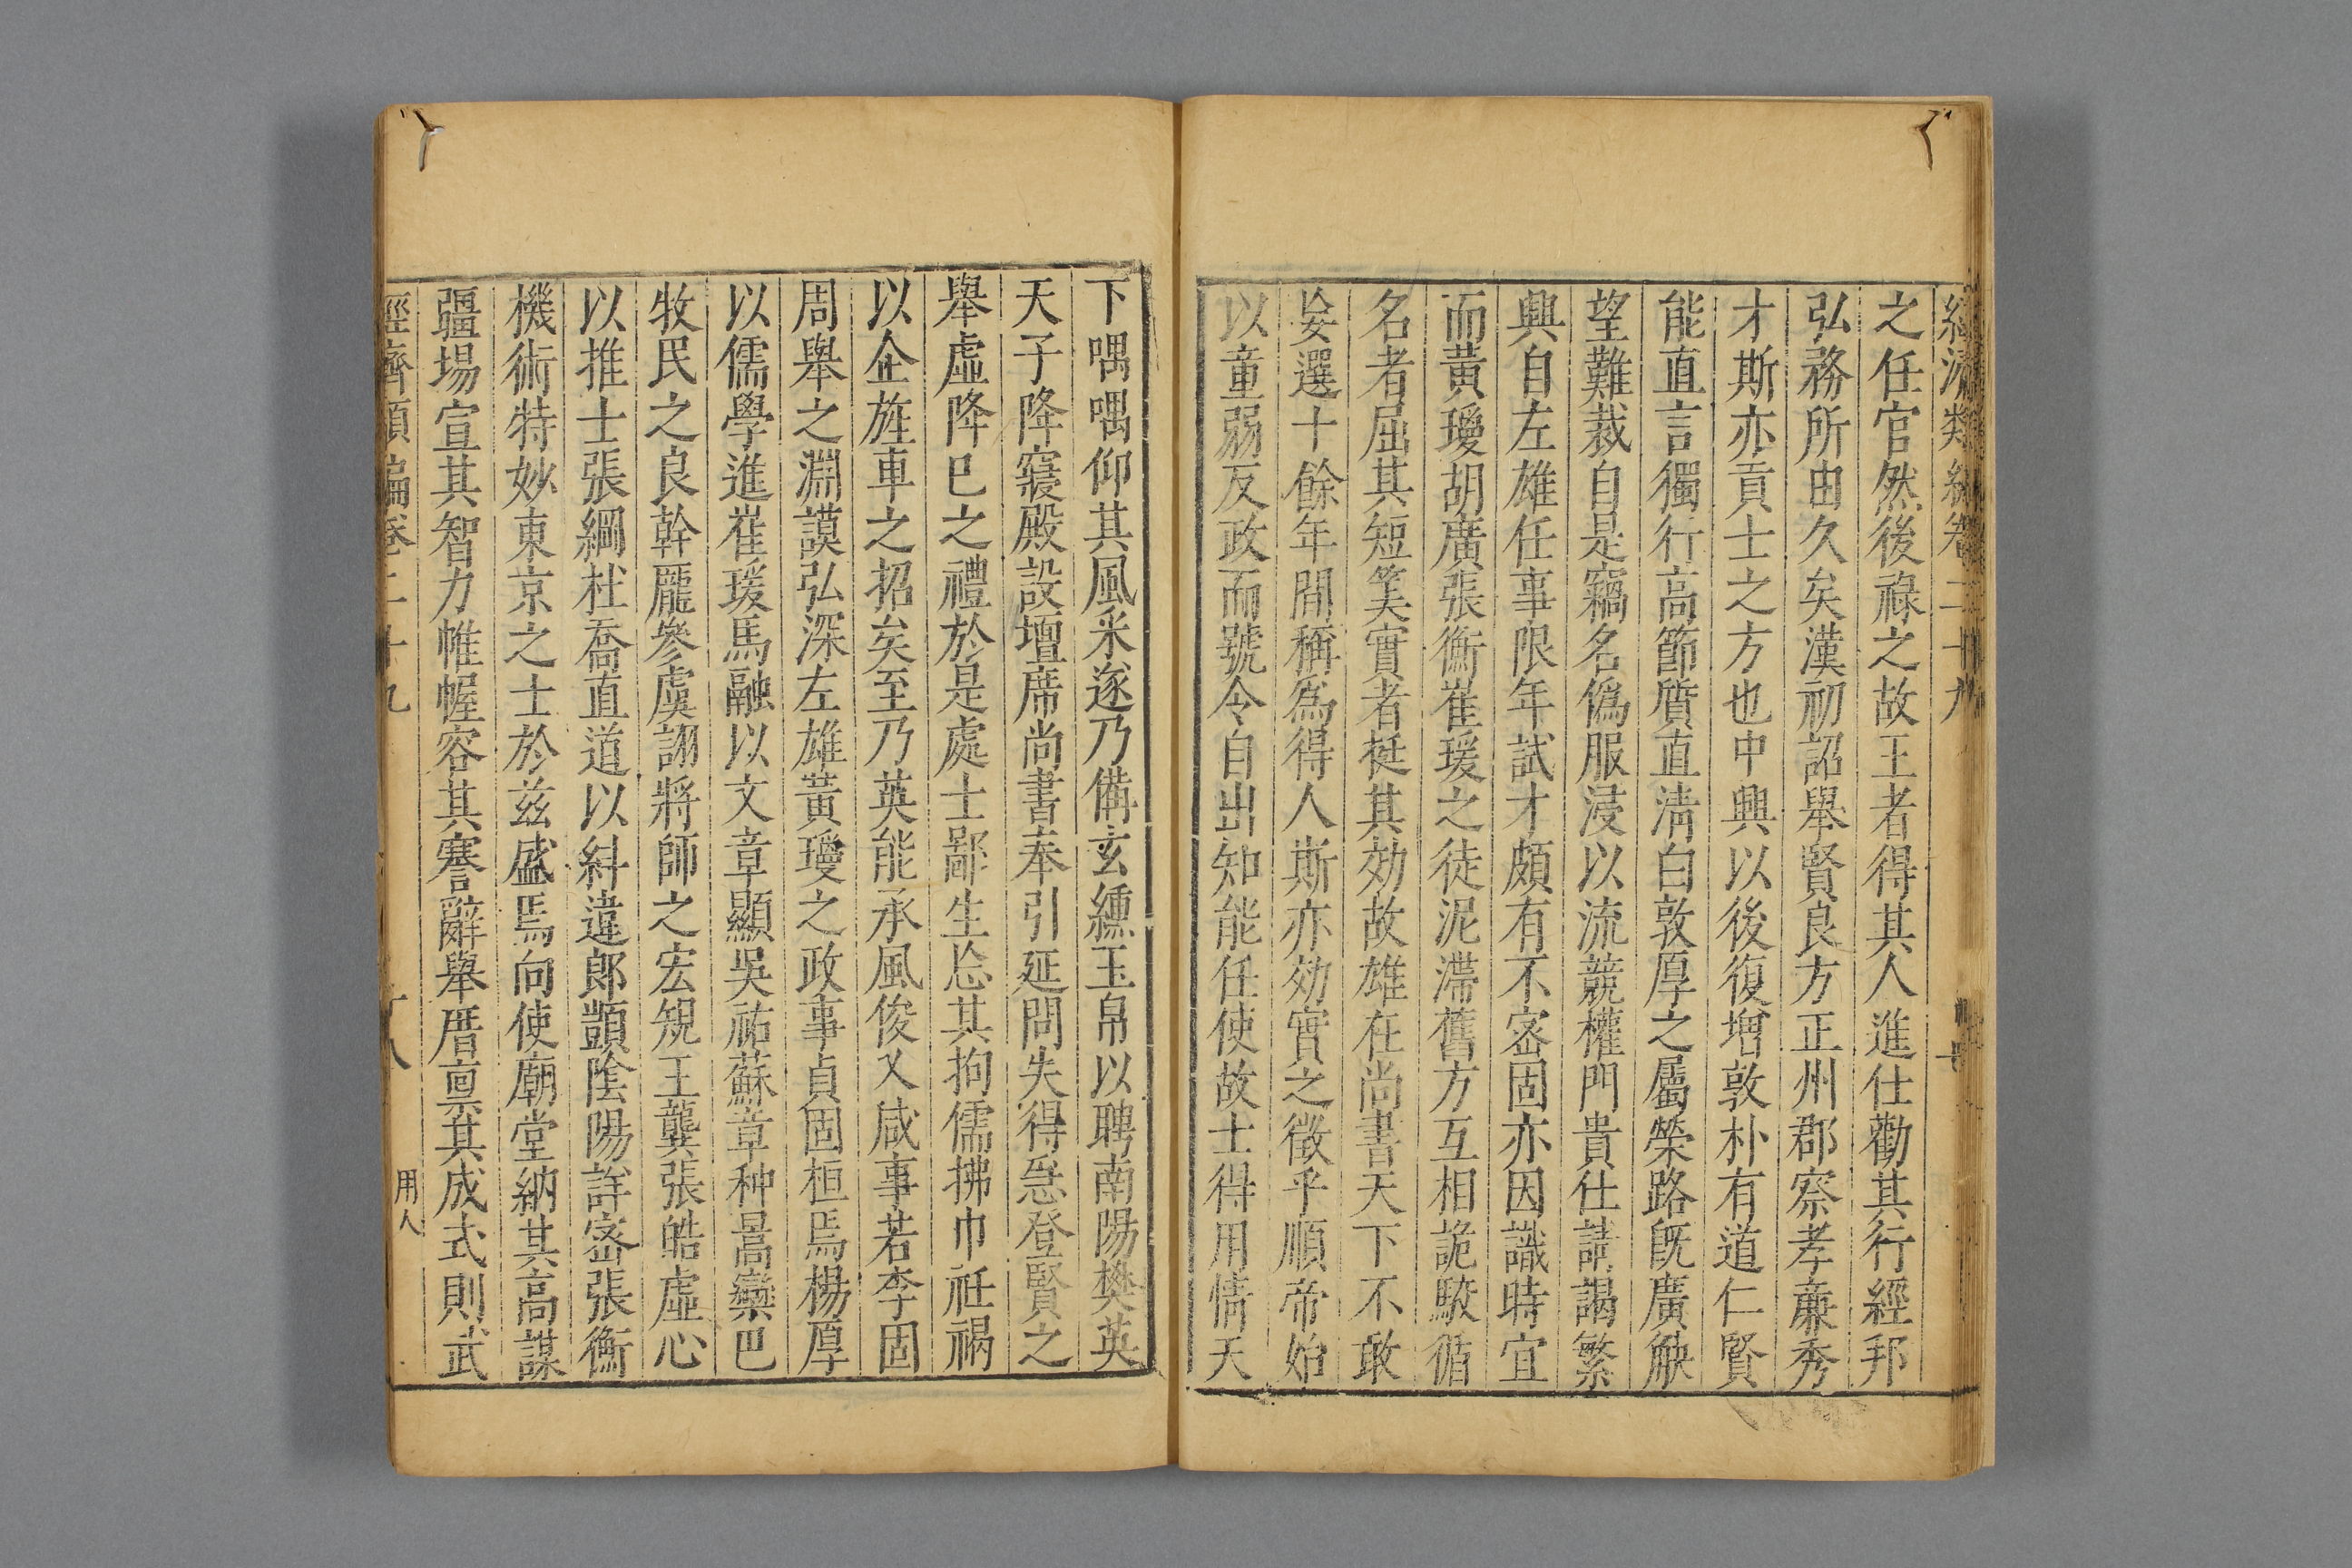 經濟類編卷二十九
之任官然後祿之故王者得其人進仕勸其行經邦
弘務所由久矣漢初詔舉賢良方正州郡察孝廉秀
才斯亦貢士之方也中興以後復增敦朴有道仁賢
能直言獨行高節質直清白敦厚之屬榮路旣廣觖
望難裁自是竊名僞服浸以流競權門貴仕請謁繁
興自左雄任事限年試才頗有不宻固亦因識時宜
而黃瓊胡廣張衡崔瑗之徒泥滯舊方互相詭駮循
名者屈其短筭實者挺其効故雄在尚書天下不敢
妄選十餘年間稱爲得人斯亦効實之徵乎順帝始
以童弱反政而號令自出知能任使故士得用情天
下喁喁仰其風采遂乃備玄纁玉帛以聘南陽樊英
天子降寢殿設壇席尚書奉引延問失得急登賢之
舉虛降巳之禮於是處士鄙生忘其拘儒拂巾衽褐
以企旌車之招矣至乃英能承風俊乂咸事若李固
周舉之淵謨弘深左雄黃瓊之政事貞固桓焉楊厚
以儒學進崔瑗馬融以文章顯吳祐蘇章种暠欒巴
牧民之良幹龐參虞詡將師之宏規王龔張皓虛心
以推士張綱杜喬直道以糾違郎顗陰陽詳宻張衡
機術特妙東京之士於兹盛焉向使廟堂納其高謀
疆場宣其智力帷幄容其謇辭舉厝稟其成式則武
經濟類編卷二十九
用人